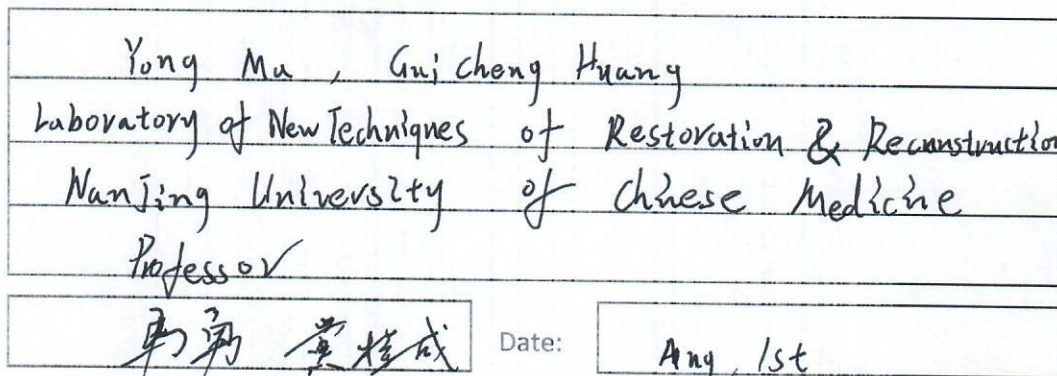 Yong Ma , Gui cheng Huang
Laboratory of New Techniques of Restoration & Reconstruction
NanJing University of Chinese Medicine
Professor
马勇 黄桂成 Date: Aug, 1st